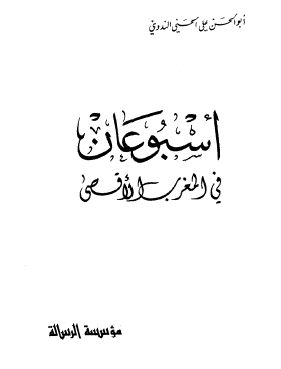 أبو الحسن علي الحسني الندوي
أسْبُوعَان
في المغرب الأقصى
مؤسسة الرسالة